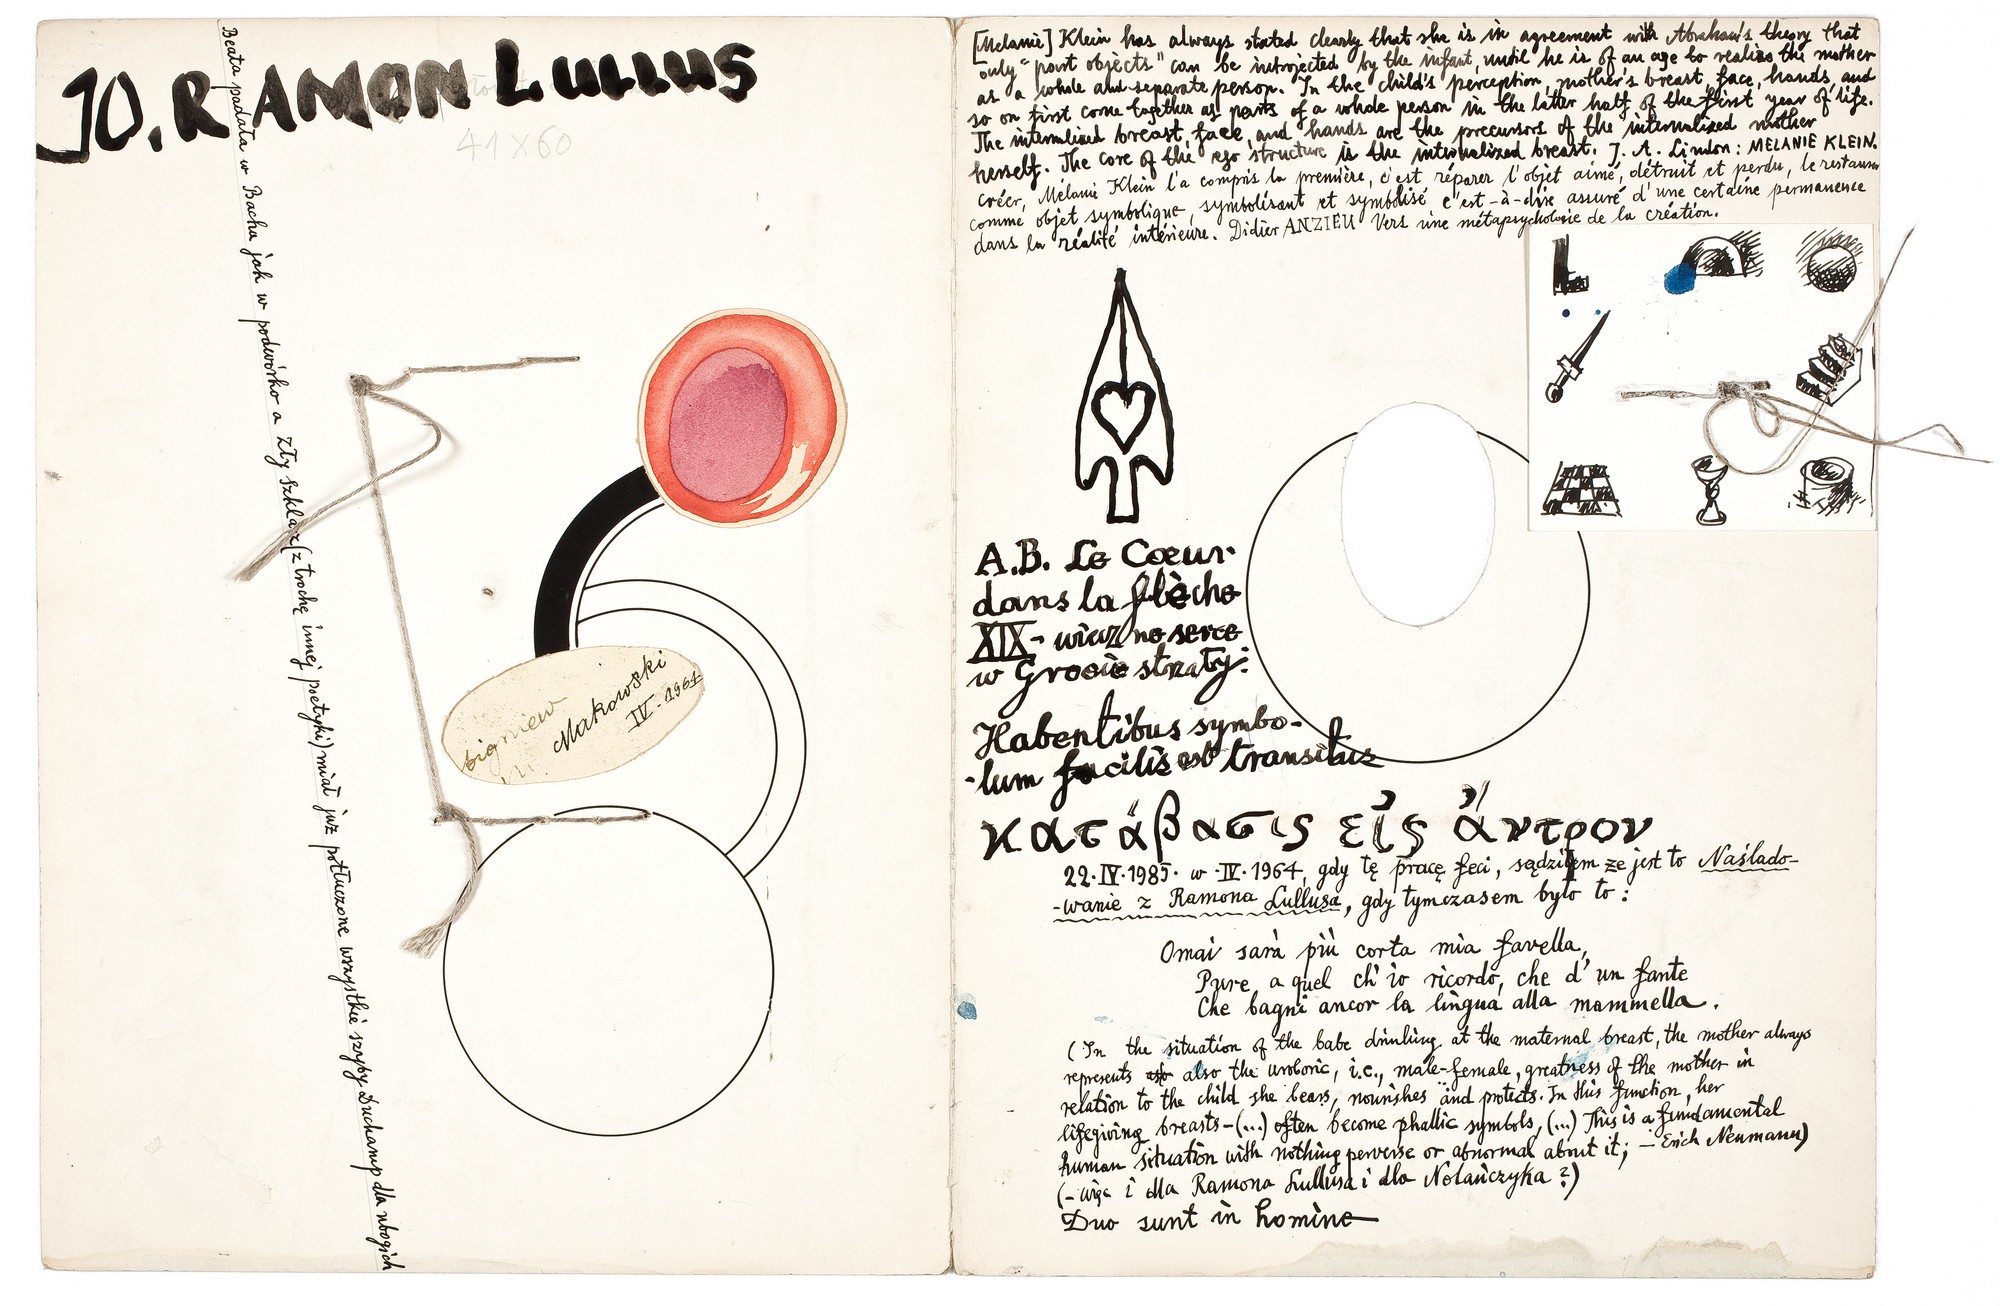 10. RAMON LULLUS
41 X 60
Beata padała w Bachu jak w podwórko a zły szklarz (z trochę innej poetyki) miał już potłuczone wszystkie szyby Duchamp dla ubogich
Zbigniew
Makowski
IV - 1964
[Melanie] Klein has always stated clearly that she is in agreement with Abraham's theory that
only "part objects" can be introjected by the infant, until he is of an age to realize the mother
as a whole and separate person. In the child's perception, mother's breast, face, hands, and
so on first come together as parts of a whole person in the latter half of the first year of life.
The internalized breast, face, and hands are the precursors of the internalized mother
herself. The core of the ego structure is the internalized breast. J. A. Lindon: MELANIE KLEIN.
créer, Mélanie Klein l'a compris la première, c'est réparer l'objet aimé, détruit et perdu, le restaurer
comme objet symbolique, symbolisant et symbolisé c'est-à-dire assuré d'une certaine permanence
dans la réalité intérieure. Didier ANZIEU Vers une métapsychologie de la création.
A.B. Le Cœur
dans la flèche
XIX - wieczne serce
w Grocie straty:
Habentibus symbo-
-lum facilis est transitus
κατάβασις εἰς ἄντρον
22.IV.1985. w .IV. 1964, gdy tę pracę feci, sądziłem że jest to Naślado-
-wanie z Ramona Lullusa, gdy tymczasem było to:
Omai sarà più corta mia favella,
Pure a quel ch'io ricordo, che d'un fante
Che bagni ancor la lingua alla mammella.
(In the situation of the babe drinking at the maternal breast, the mother always
represents also the uroboric, i.e., male-female, greatness of the mother in
relation to the child she bears, nourishes and protects. In this function, her
lifegiving breasts - (...) often become phallic symbols, (...) This is a fundamental
human situation with nothing perverse or abnormal about it; - Erich Neumann)
(- więc i dla Ramona Lullusa i dla Nolańczyka ?)
Duo sunt in homine